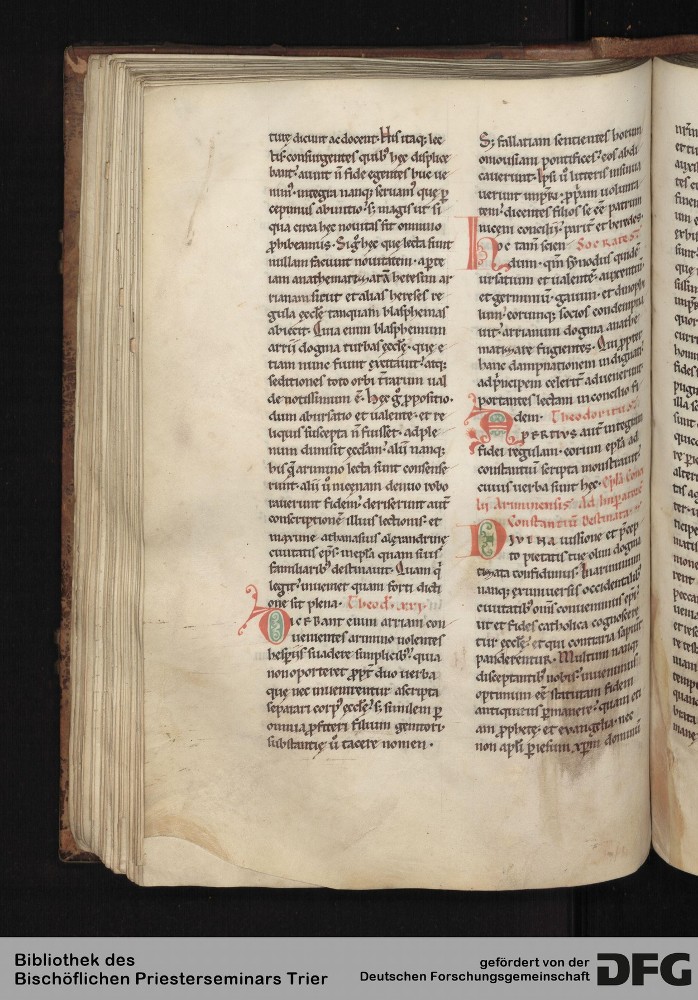 turę dicunt ac docent. His itaq; lec
tis consurgentes quib' hęc displice
bant. aiunt. ñ fide egentes huc ue
nim'. integrã nanq; seruam' quę ꝑ
cepimus ab initio. s; magis ut si
qua circa hęc nouitas sit omnino
ꝓhibeamus. Si g̊ hęc quę lecta sunt
nullam faciunt nouitatem. aperte
iam anathematizate heresim ar
rianam sicut et alias hereses re
gula ęcclę tanquam blasphemas
abiecit. Quia enim blasphemum
arrii dogma turbas ęcclę. quę e
tiam nunc fiunt excitauit. atq;
seditiones toto orbi terrarum ual
de notissimum ē. Hęc g̊ ꝓpositio.
dum ab ursatio et ualente. et re
liquis suscepta ñ fuisset. ad ple
num diuisit ęccłam. alii nanq;
his q̨ arimino lecta sunt consense
runt. alii ů nicenam denuo robo
rauerunt fidem. deriserunt aut̃
conscriptionē illius lectionis. et
maxime athanasius alexandrinę
ciuitatis eps̃. in epła quam suis
familiarib' destinauit. Quam q̨
legit. inueniet quam forti dicti
one sit plena. Theod'. xxp̃.
Dicebant enim arriani con
uenientes arimino uolentes
hesperiis suadere simplicib'. quia
non oporteret ꝓpt' duo uerba
quę nec inuenirentur ascripta
separari corp' ęcclę. s; similem ꝑ
omnia ꝓfiteri filium genitori.
substantię ů tacere nomen.
S; fallatiam sentientes horum
omousiani pontifices. eos abdi
cauerunt. Ipsi ů litteris insinua
uerunt imp̃ri. ꝓpriam uolunta
tem. dicentes filios se eē patrum
nicęni concilii. parit̃ et heredes.
Hoc tam scien Socrates
dum. qm̃ synodus quidē
ursatium et ualentē. auxentiũ
et germiniũ. gaium. et dimophi
lum. eorumq; socios condempna
uit. arrianum dogma anathe
matizare fugientes. Qui ꝓpter
hanc dampnationem indignati.
ad pincipem celerit̃ aduenerunt.
portantes lectam in concilio fi
dem. Theodoritus
Apertius aut̃ integram
fidei regulam. eorum epła ad
constantiũ scripta monstrauit.
cuius uerba sunt hęc. Epła conci
lii Ariminensis ad Imperatorē
Constantiũ destinata.
Diuina iussione et pręcep
to pietatis tuę olim dogma
tizata confidimus. In ariminum
nanq; ex uniuersis occidentalib'
ciuitatib' oms̃ conuenimus epi.
ut et fides catholica cognosceret
tur ęcclę. et qui contraria sapiũt
panderentur. Multum nanq;
disceptantib' nobis. inuenimus
optimum eē statutam fidem
antiquitus ꝑmanere. quam eti
am ꝓphetę. et evangelia. nec
non apłi ꝑ iesum xp̃m dominũ
Bibliothek des
Bischöflichen Priesterseminars Trier
gefördert von der
Deutschen Forschungsgemeinschaft
DFG